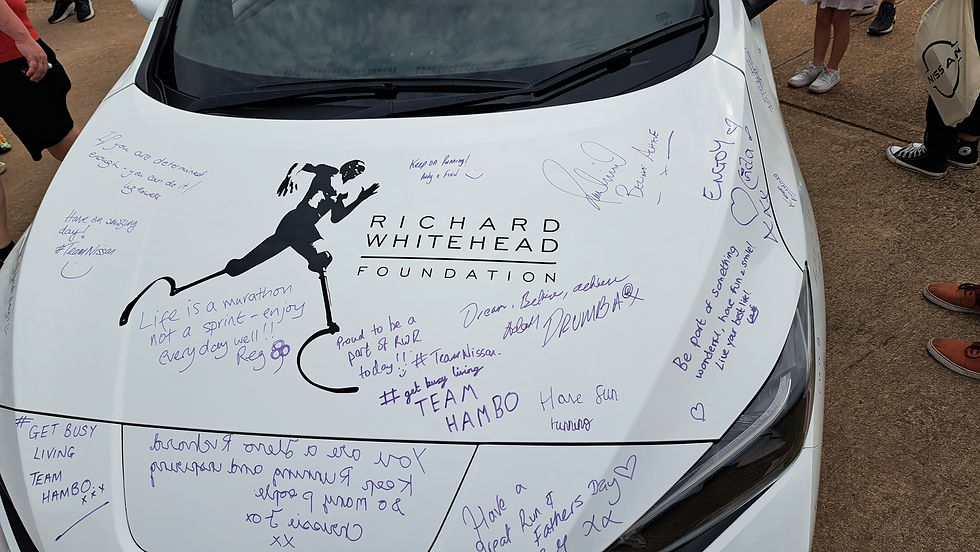 If you are determined
enough, you can do it!
Keep on running!
Have an amazing
day!
#TeamNissan
RICHARD
WHITEHEAD
FOUNDATION
ENJOY
NISSAN
Life is a marathon
not a sprint - enjoy
every day well!!!
Reg
Proud to be a
part of RWR
today!!
#TeamNissan.
#get busy living
TEAM
HAMBO
Dream, Believe, achieve
DRUMBA
Have fun
running
Be part of something
wonderful, have fun & smile!
Live your best life!
#GET BUSY
LIVING
TEAM
HAMBO. xxx
You are a Hero Richard
Keep Running and inspiring
so many people
Chrissie Fox
xx
Have a
great Run &
Fathers Day
xx